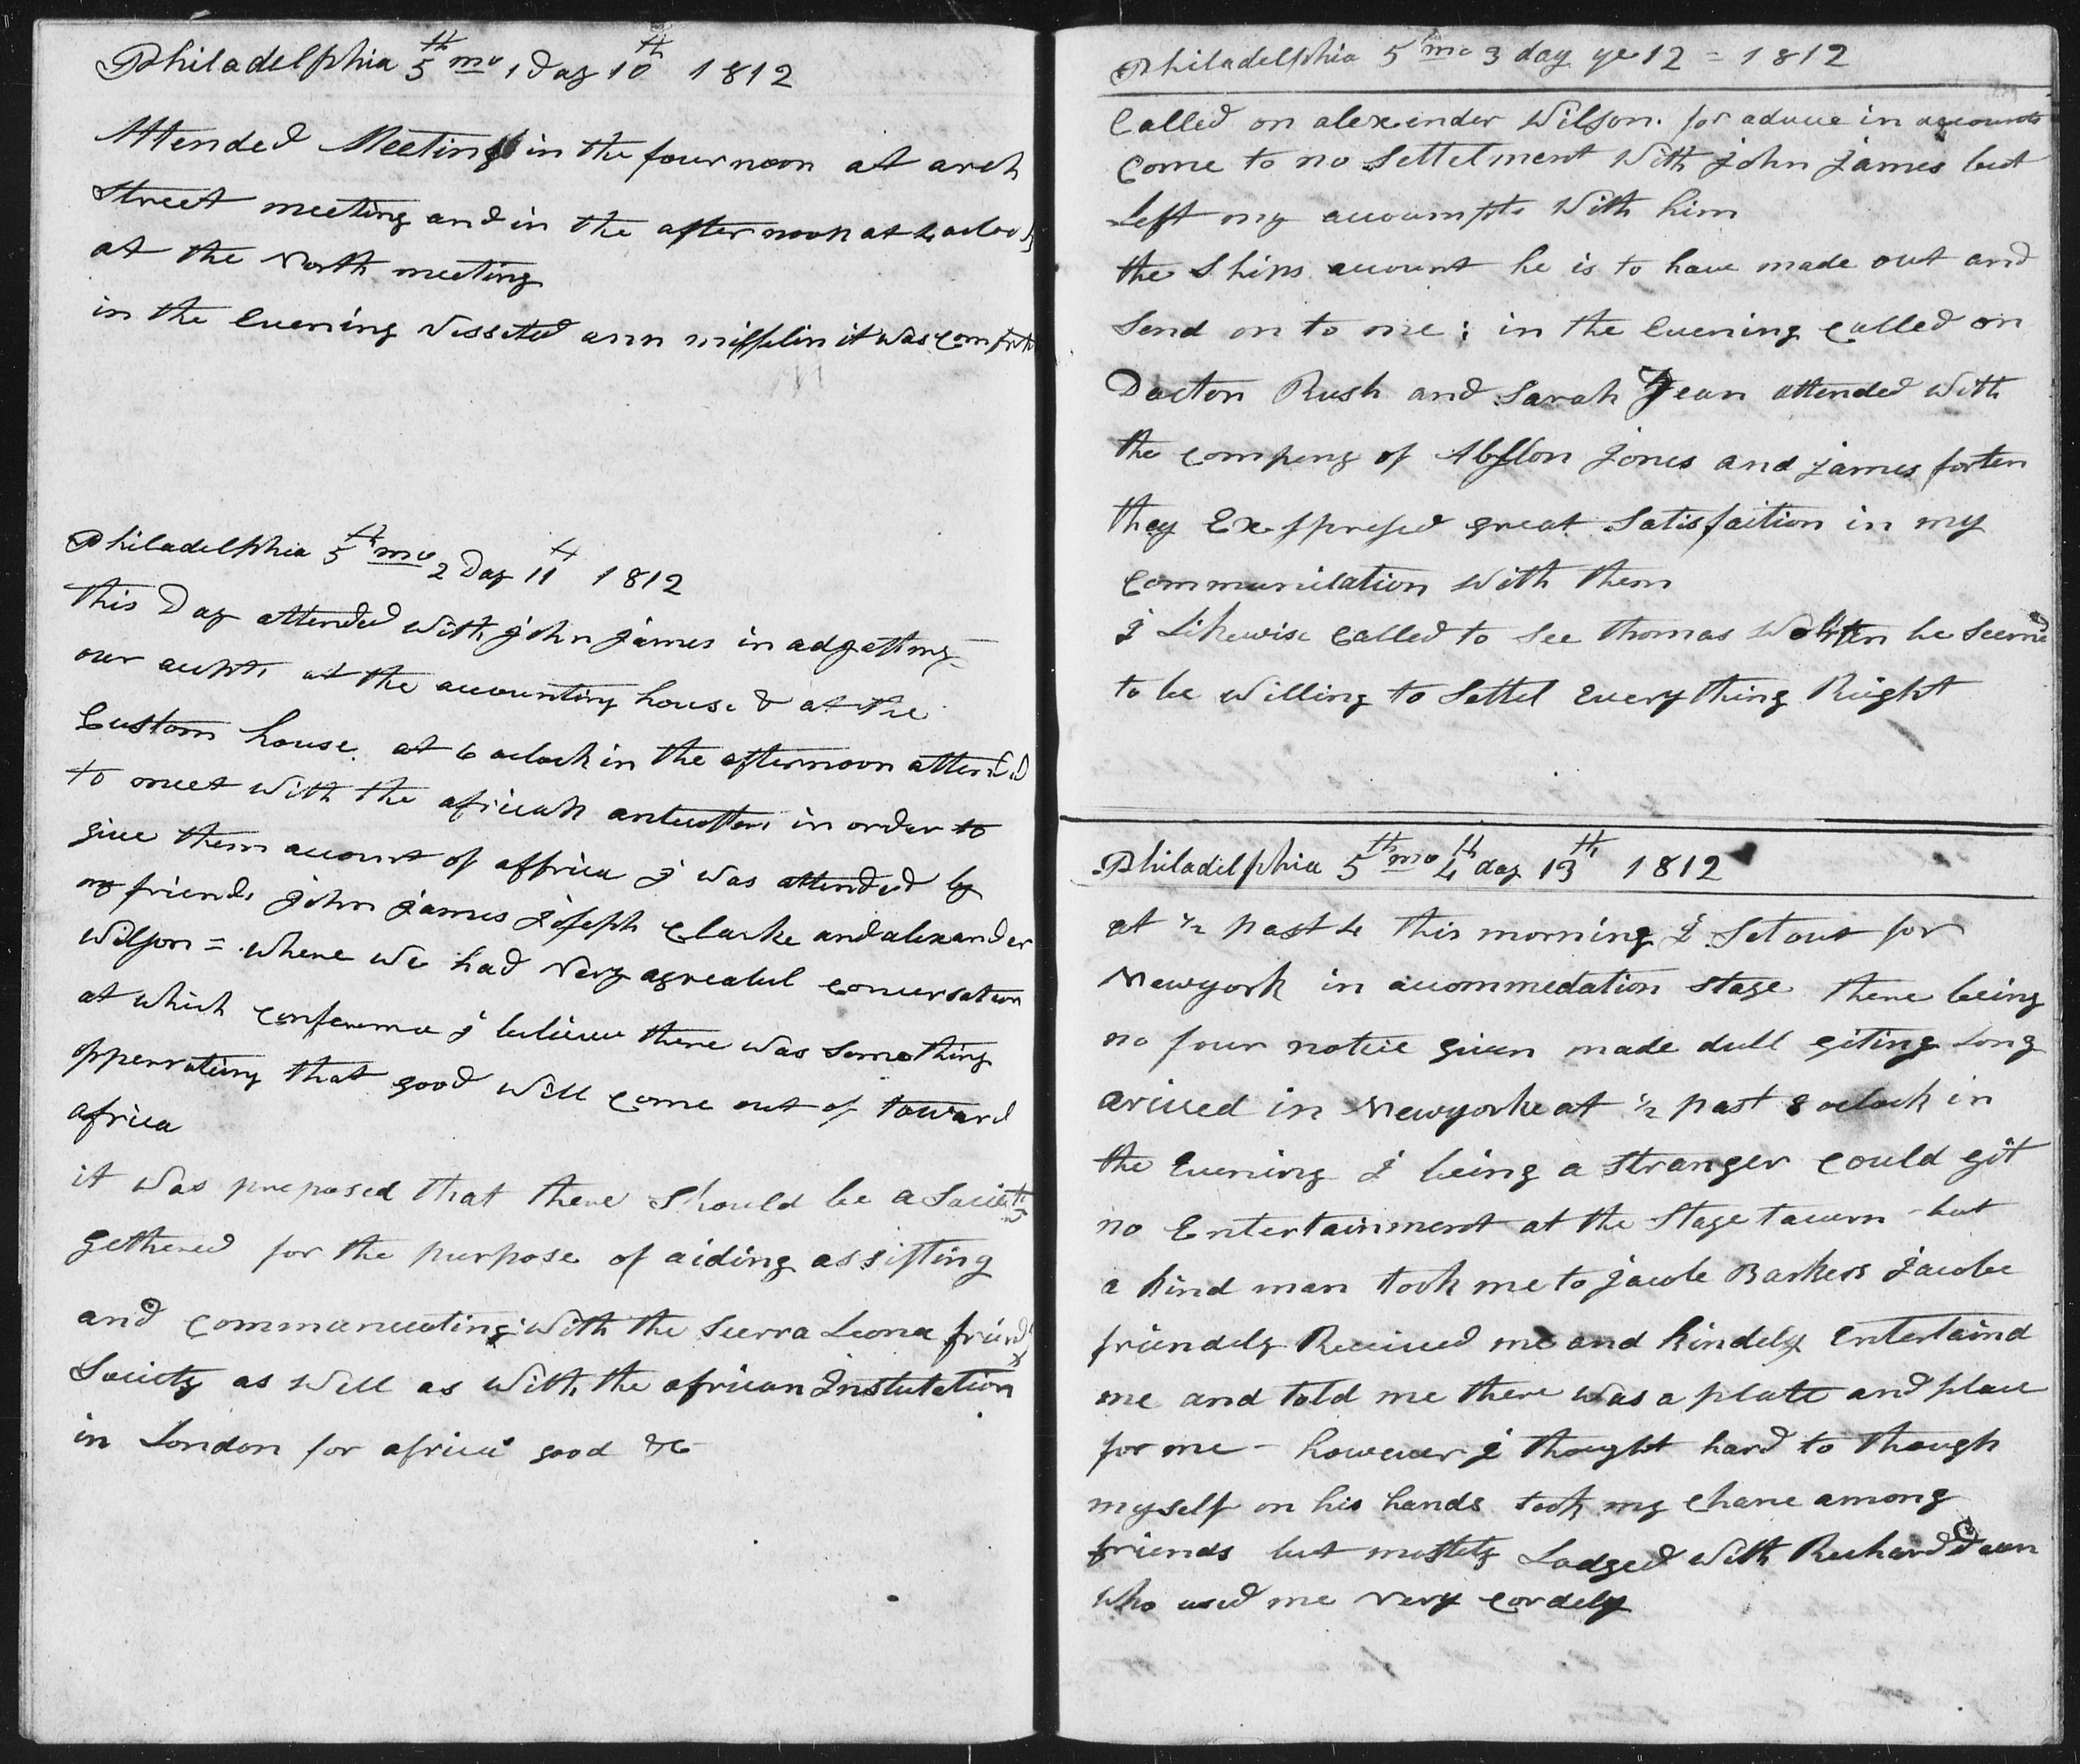 Philadelphia 5th mo 1 Day 10th 1812
Attended Meeting in the fournoon at arch
Street meeting and in the afternoon at 4 acloc
at the North meeting
in the Evening Vissited ann mifflin it was comfort
Philadelphia 5th mo 2 Day 11th 1812
this Day attended with john james in adgasting
our acupts at the accounting house & at the
Custom house. at 6 aclock in the afternoon attended
to meet with the african in order to
give them account of affrica j was attended by
my friends john james joseph Clarke and alexander
Wilson = where we had very agreabel conversation
at which conference j believe there was something
opperrating that good will come out of toward
africa
it was preposed that there should be a Society
gethered for the purpose of aiding assisting
and communicating with the Sierra Leona friend
Society as will as with the african Instutetion
in London for africa good &c
Philadelphia 5 mo 3 day ye 12 = 1812
Called on alexender Wilson. for advice in accounts
Come to no Settelment With john james but
Left my accoumpts With him
the Ships account he is to have made out and
Send on to me; in the Evening called on
Docton Rush and Sarah attended with
the compeny of Abslon jones and james forten
they Exsppressed great Satisfaction in my
Communication with them
j Likewise Called to See thomas he Seemed
to be Willing to Settel Every thing Right
Philadelphia 5th mo 4th day 13th 1812
at ½ past 4 this morning I Set out for
Newyork in accommedation Stage there being
no four notice given made dull giting Long
arived in Newyorke at ½ past 8 aclock in
the Evening I being a Stranger could git
no Entertainment at the Stage tavern - but
a kind man took me to jacob Barkers Jacobe
friendely Received me and kindely Entertaind
me and told me there was a plate and place
for me - however j thought hard to though
myself on his hands took my Chane among
friends but mostely Lodged with Richard
who used me very Cordely